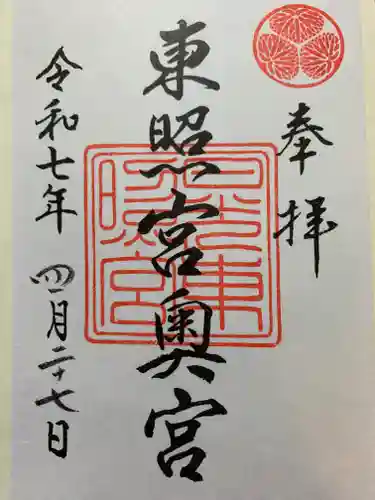 奉拝
東照宮奥宮
日光東照宮
令和七年四月二十七日